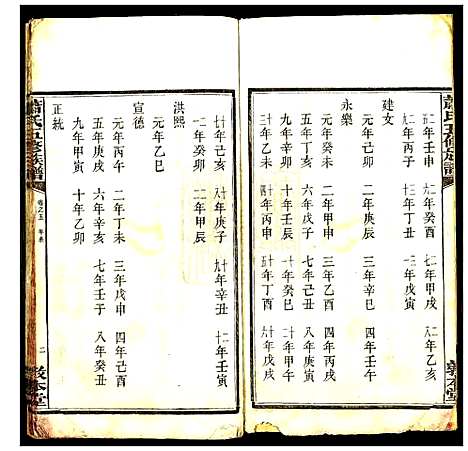 蕭氏五修族譜
敦本堂
廿五年壬申　廿六年癸酉　廿七年甲戌　廿八年乙亥
廿九年丙子　三十年丁丑　卅一年戊寅
建文
元年己卯　二年庚辰　三年辛巳　四年壬午
永樂
元年癸未　二年甲申　三年乙酉　四年丙戌
五年丁亥　六年戊子　七年己丑　八年庚寅
九年辛卯　十年壬辰　十一年癸巳　十二年甲午
十三年乙未　十四年丙申　十五年丁酉　十六年戊戌
十七年己亥　十八年庚子　十九年辛丑　二十年壬寅
廿一年癸卯　廿二年甲辰
洪熙
元年乙巳
宣德
元年丙午　二年丁未　三年戊申　四年己酉
五年庚戌　六年辛亥　七年壬子　八年癸丑
九年甲寅　十年乙卯
正統
蕭氏五修族譜
卷之五　年表
二
敦本堂